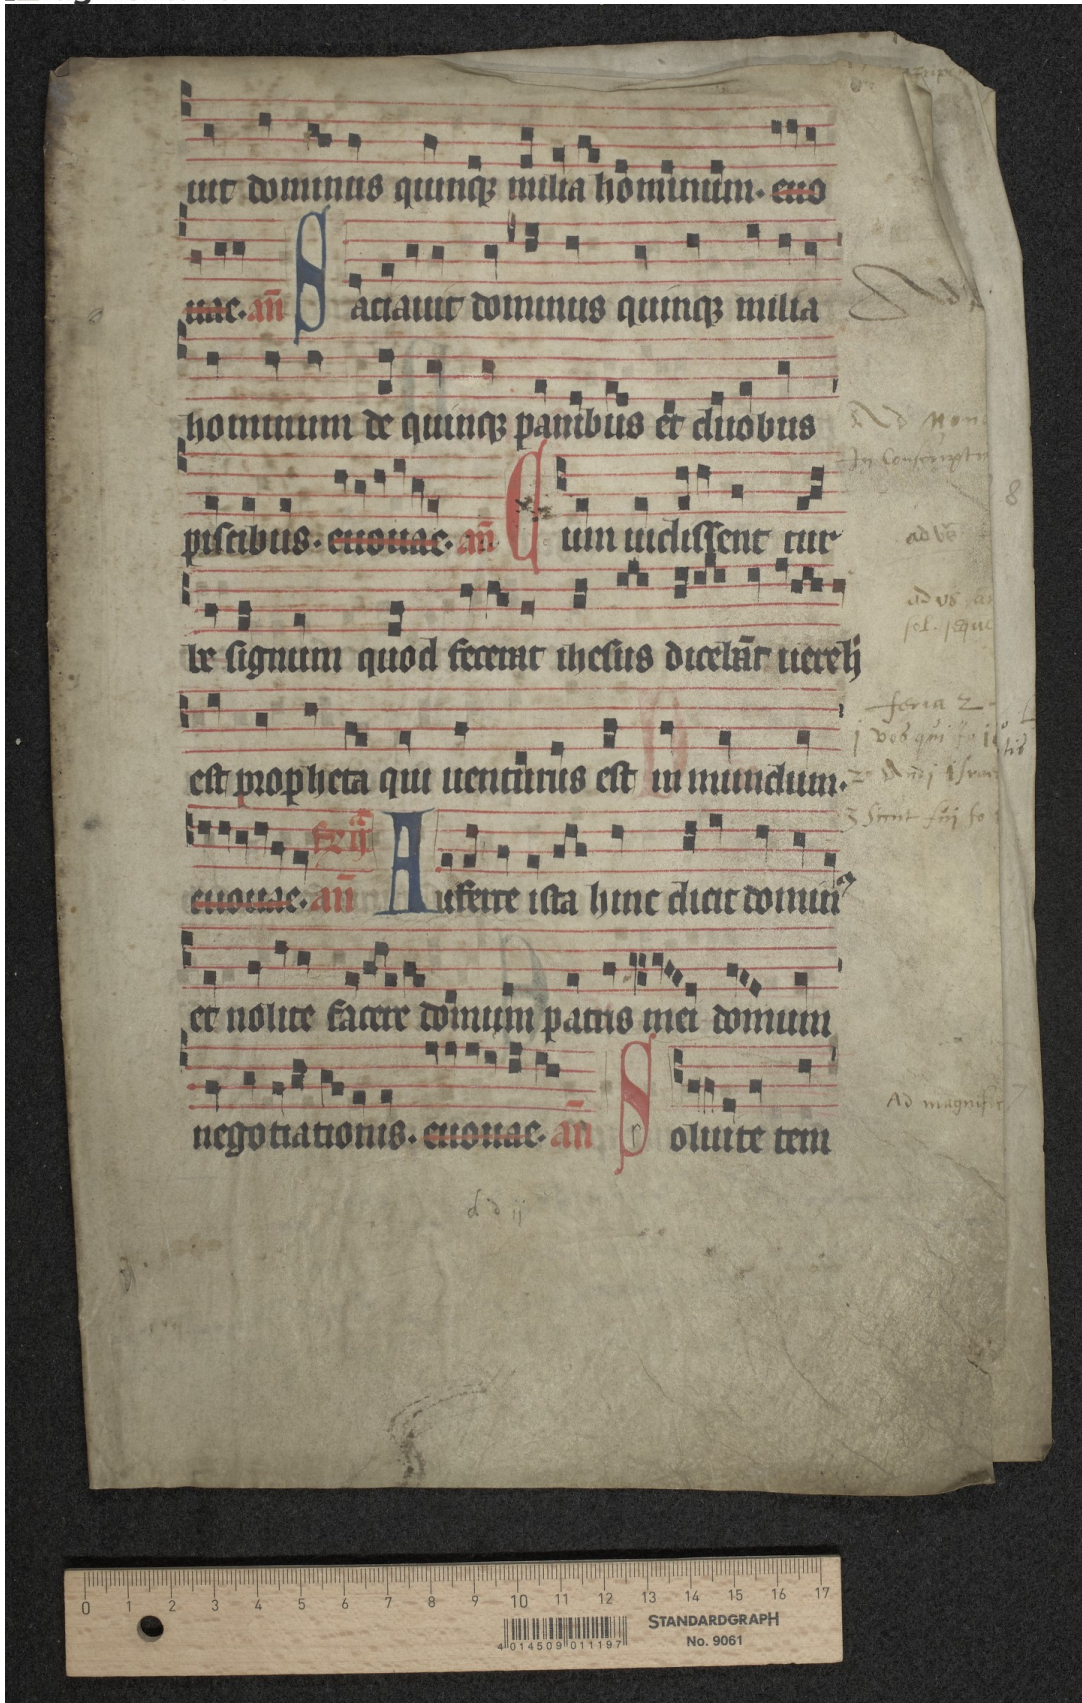 uit dominus quinq; milia hominum. euo
uae. an̄ Saciauit dominus quinq; milia
hominum de quinq; panibus et duobus
piscibus. euouae. an̄ Cum uidissent tur
be signum quod fecerat ihesus dicebāt uere h
est propheta qui uenturus est in mundum.
euouae. an̄ Auferte ista hinc dicit domin
et nolite facere domum patris mei domum
negotiationis. euouae. an̄ Soluite tem
8
ad vs
feria 2
Ad magnifi
0 1 2 3 4 5 6 7 8 9 10 11 12 13 14 15 16 17
STANDARDGRAPH
No. 9061
4 014509 011197